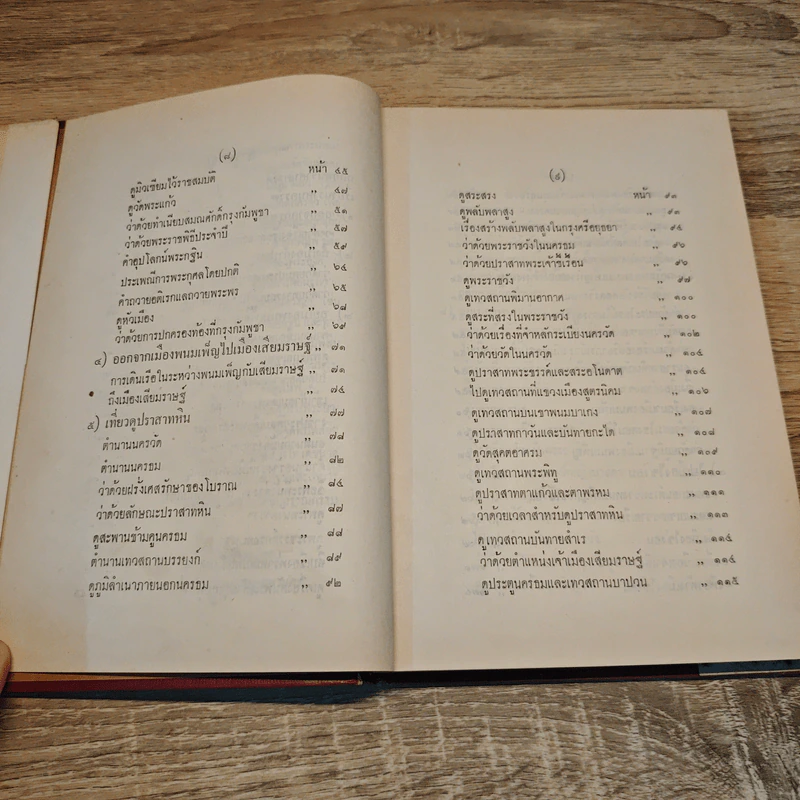 (๘)
หน้า
ดูมิวเซียมไว้ราชสมบัติ ๔๕
ดูวัดพระแก้ว ,, ๔๗
ว่าด้วยทำเนียบสมณศักดิ์กรุงกัมพูชา ,, ๕๑
ว่าด้วยพระราชพิธีประจำปี ,, ๕๗
คำอุปโลกน์พระกฐิน ,, ๕๙
ประเพณีการพระกุศลโดยปกติ ,, ๖๔
คำถวายอติเรกแลถวายพระพร ,, ๖๕
ดูหัวเมือง ,, ๖๘
ว่าด้วยการปกครองท้องที่กรุงกัมพูชา ,, ๖๙
๔) ออกจากเมืองพนมเพ็ญไปเมืองเสียมราษฎร์ ,, ๗๑
การเดินเรือในระหว่างพนมเพ็ญกับเสียมราษฎร์ ,, ๗๑
ถึงเมืองเสียมราษฎร์ ,, ๗๕
๕) เที่ยวดูปราสาทหิน ,, ๗๗
ตำนานนครวัด ,, ๗๘
ตำนานนครธม ,, ๘๒
ว่าด้วยฝรั่งเศสรักษาของโบราณ ,, ๘๔
ว่าด้วยลักษณะปราสาทหิน ,, ๘๗
ดูสะพานข้ามคูนครธม ,, ๘๘
ตำนานเทวสถานบรรยงก์ ,, ๘๙
ดูภูมิลำเนาภายนอกนครธม ,, ๙๒
(๙)
ดูสระสรง หน้า ๙๓
ดูพลับพลาสูง ,, ๙๓
เรื่องสร้างพลับพลาสูงในกรุงศรีอยุธยา ,, ๙๔
ว่าด้วยพระราชวังในนครธม ,, ๙๖
ว่าด้วยปราสาทพระเจ้าขี้เรื้อน ,, ๙๖
ดูพระราชวัง ,, ๙๗
ดูเทวสถานพิมานอากาศ ,, ๑๐๐
ดูสระที่สรงในพระราชวัง ,, ๑๐๐
ว่าด้วยเรื่องที่จำหลักระเบียงนครวัด ,, ๑๐๒
ว่าด้วยวัดในนครวัด ,, ๑๐๔
ดูปราสาทพระขรรค์และสระอโนดาต ,, ๑๐๔
ไปดูเทวสถานที่แขวงเมืองสูตรนิคม ,, ๑๐๖
ดูเทวสถานบนเขาพนมบาเกง ,, ๑๐๗
ดูปราสาทกาวันและบันทายกะได ,, ๑๐๘
ดูวัดสุคตอาศรม ,, ๑๐๙
ดูเทวสถานพระพิทู ,, ๑๑๐
ดูปราสาทตาแก้วและตาพรหม ,, ๑๑๑
ว่าด้วยเวลาสำหรับดูปราสาทหิน ,, ๑๑๓
ดูเทวสถานบันทายสำเร ,, ๑๑๔
ว่าด้วยตำแหน่งเจ้าเมืองเสียมราษฎร์ ,, ๑๑๔
ดูประตูนครธมและเทวสถานบาปวน ,, ๑๑๕